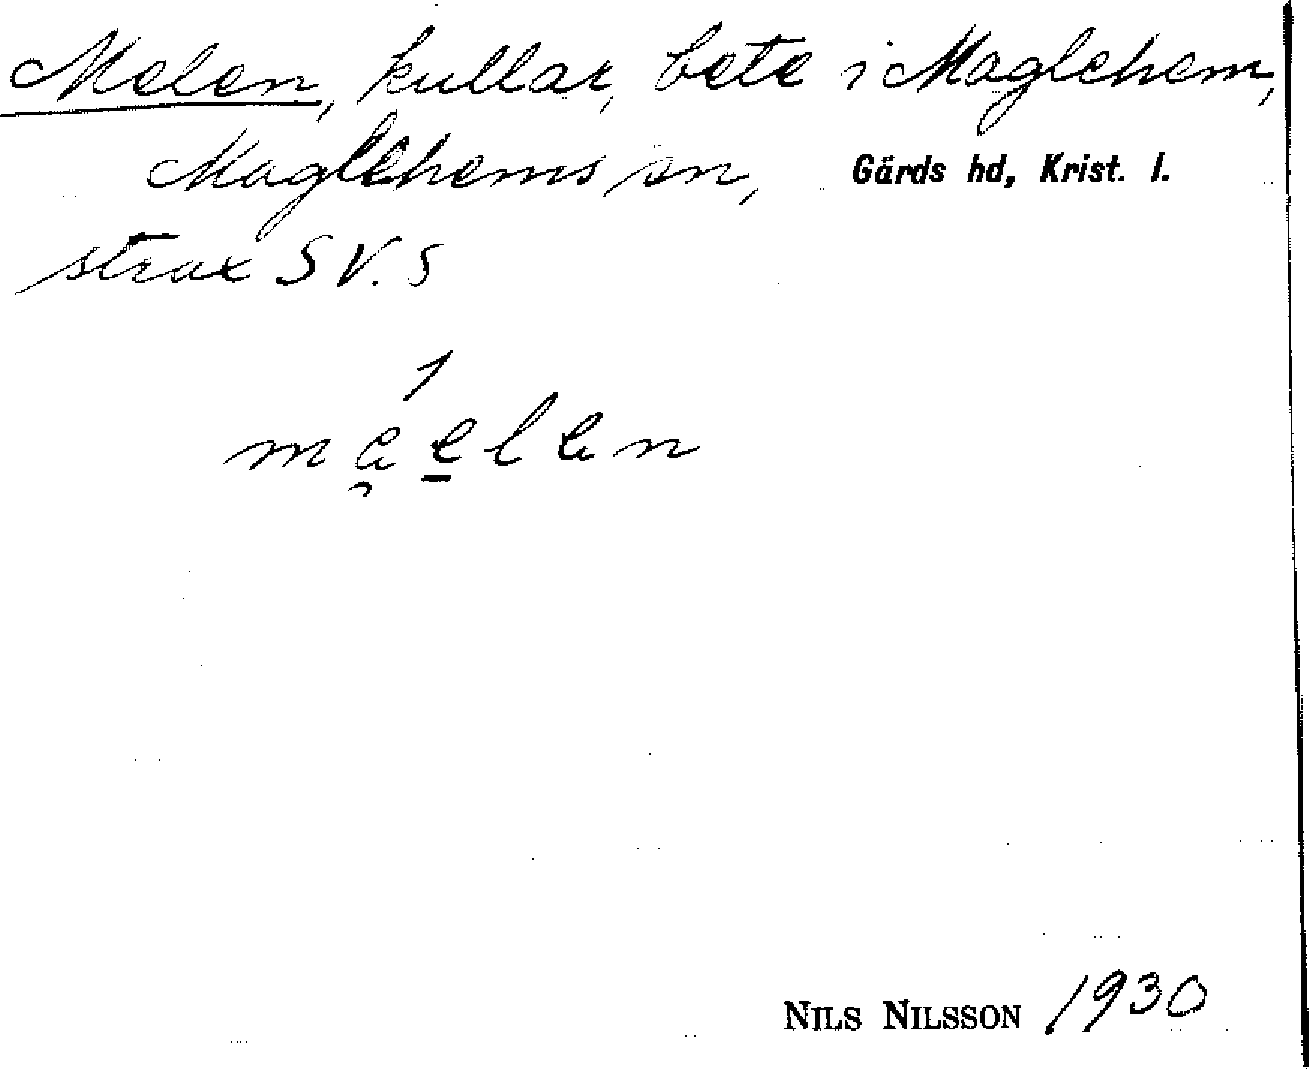 Melen, kullar, bete i Maglehem,
Maglehems sn, Gärds hd, Krist. l.
strax SV. S
NILS NILSSON 1930